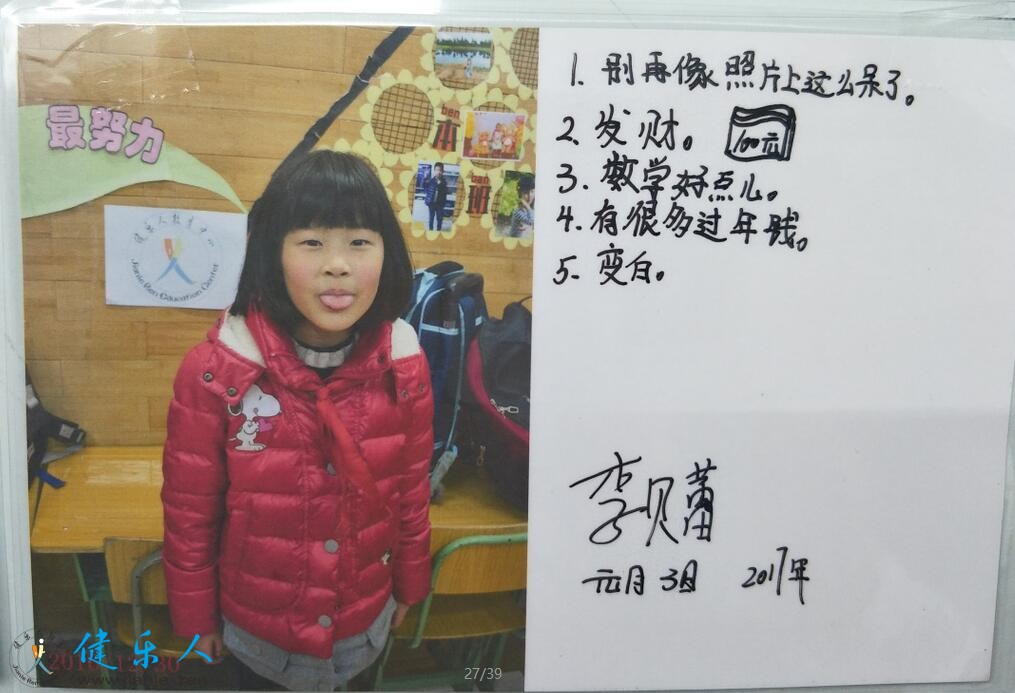 最努力
ben
本
ban
班
健乐人教育中心
Jianle Ren Education Center
1. 别再像照片上这么呆了。
2. 发财。 100元
3. 数学好点儿。
4. 有很多过年钱。
5. 变白。
李贝蕾
元月3日 2017年
健乐人
27/39